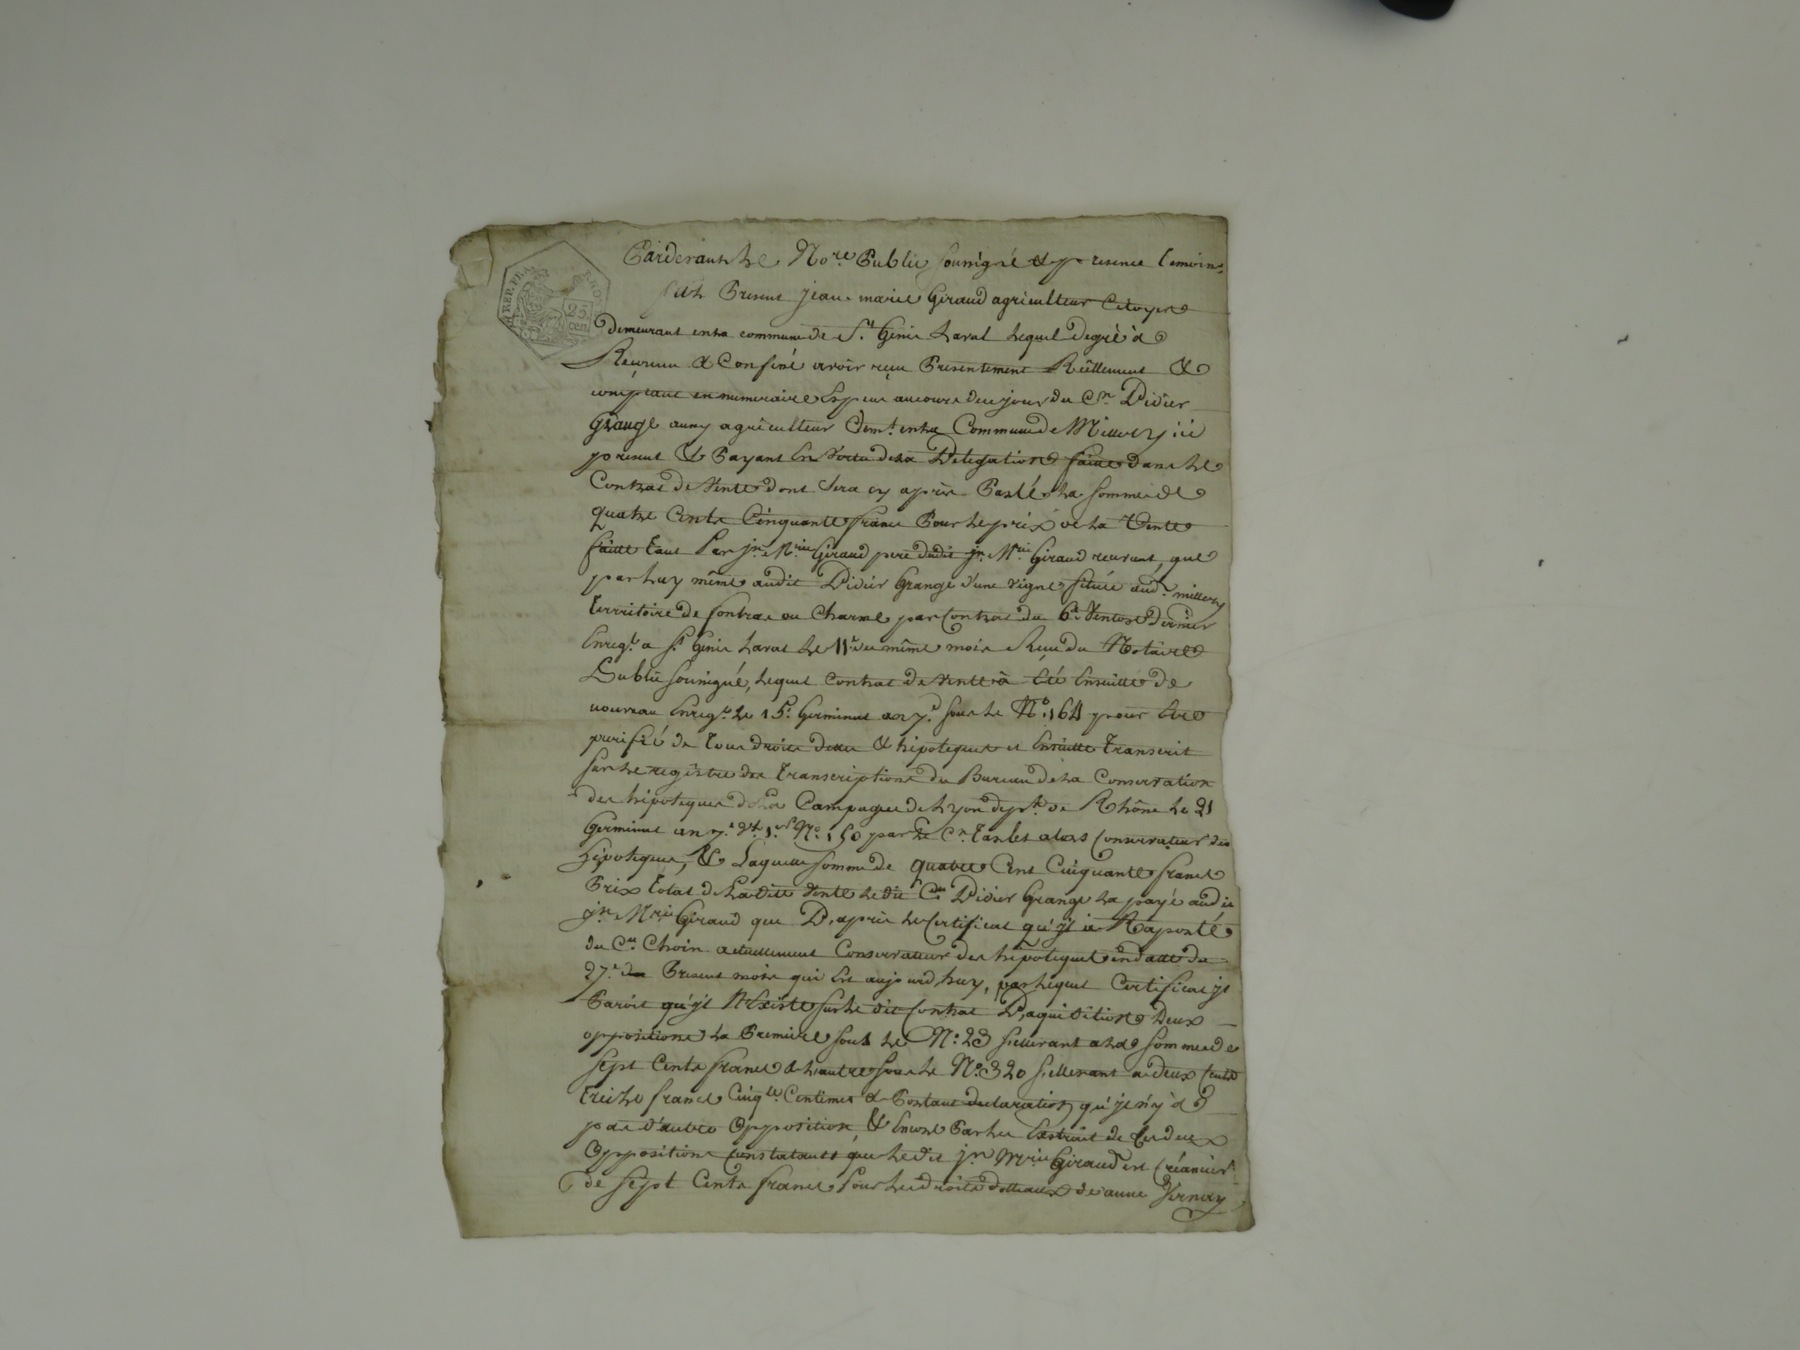 RÉP. FRA
25 cen.
Pardevant Le No.re Public soussigné & presence temoins
fut Present jean marie Giraud agriculteur Citoyen
demeurant en la commune de S.t Genis Laval Lequel de gré à
Reconnu & Confessé avoir reçu Presentement Réellement &
comptant en numeraire Espece au cours de ce jour du C.en Didier
Grange aussy agriculteur dem.t en la Commune de Millery ici
present & Payant En vertu de La Delegation faitte dans Le
Contrat de Vente dont sera cy après Parlé La somme de
quatre Cents Cinquante francs Pour Le prix de La Vente
faitte tant Par j.n M.rie Giraud pere dudit j.n M.rie Giraud recevant, que
par Luy même audit Didier Grange d'une vigne située aud. millery
territoire de fontrac ou Charme par Contrat du 6.e Ventose dernier
Enreg.té a S.t Genis Laval Le 11.e du même mois Reçu du Notaire
Public soussigné, Lequel contrat de Vente à Eté Ensuitte de
nouveau Enreg.té Le 15.e Germinal an 7.e sous Le N.o 164 pour Etre
purifié de tous droits dettes & hipoteques et Ensuitte transcrit
sur Le registre des transcriptions du Bureau de La Conservation
des hipoteques de La Campagne de Lyon dep.t de Rhône Le 21
Germinal an 7.e V.l 1.er N.o 150 par Le C.n alors Conservateur des
hipoteques, & Laquelle somme de quatre Cent Cinquante francs
Prix total de La ditte Vente Le dit C.en Didier Grange La payé au dit
j.n M.rie Giraud que D'après Le Certificat qu'jl à Raporté
du C.en Choin actuellement Conservateur des hipoteques en datte du
27.e du Present mois qui Est aujourd'huy, par Lequel Certificat jl
Paroit qu'jl N'Existe sur Le dit Contrat D'aquisition Deux
oppositions La Premiere sous Le N.o 23 s'ellevant a La somme de
sept Cents francs & L'autre sous Le N.o 320 s'ellevant a deux Cents
treize francs Cinq.te Centimes & Portant declaration qu'jl n'y à
pas d'autre Opposition, & Encore Par Les Extrait de Ces deux
Oppositions Constatants que Le dit j.n M.rie Giraud est Créancier
de sept Cents francs Pour Les droits dotteaux de anne Vernay